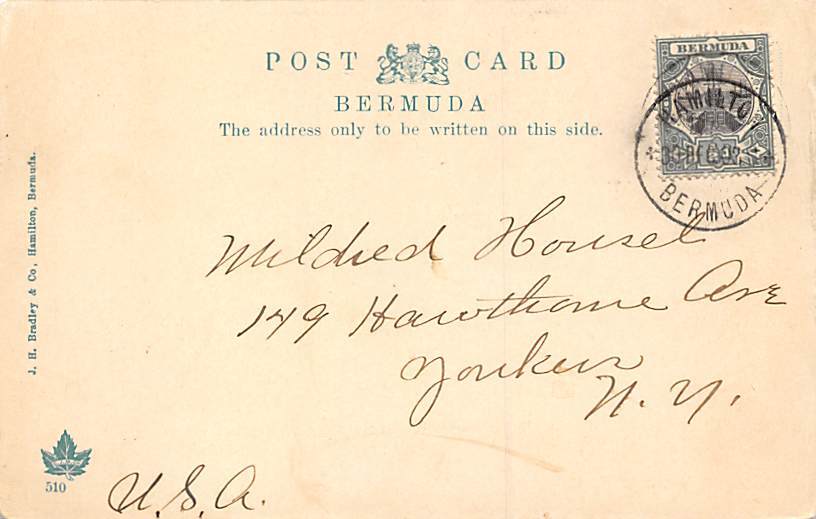 POST CARD
BERMUDA
The address only to be written on this side.
BERMUDA
HAMILTON
BERMUDA
Mildred Housel
149 Hawthorne Ave
Yonkers
N. Y.
U.S.A.
J. H. Bradley & Co, Hamilton, Bermuda.
510